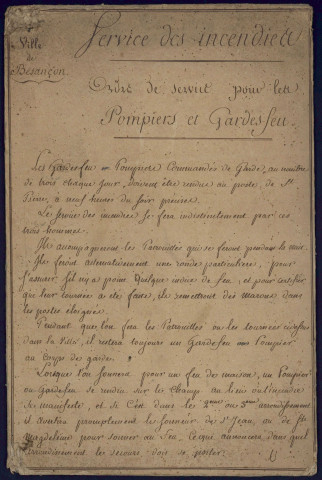 Ville
de
Besançon.
Service des incendies
Ordre de service pour les
Pompiers et Gardes feu.
Les Gardes feu ou Pompiers Commandés de Garde, au nombre
de trois chaque jour, doivent être rendus au poste de St
Pierre, à neuf heures du soir précises.
Le service des incendies se fera indistinctement par ces
trois hommes.
Ils accompagneront les Patrouilles qui se feront pendant la nuit.
Ils feront alternativement une ronde particulière, pour
s'assurer s'il n'y a point quelque indice de feu, et pour certifier
que leur tournée a été faite, ils remettront des marons dans
les postes éloignés.
Pendant que l'on fera les Patrouilles ou les tournées
dans la Ville, il restera toujours un Gardefeu ou Pompier
au Corps de garde.
Lorsque l'on sonnera pour un feu de maison, un Pompier
ou Gardefeu se rendra sur les champs au lieu où l'incendie
se manifeste, et si c'est dans les 2eme ou 3eme arrondissement
il avertira promptement le sonneur de St Jean, ou de Ste
Magdelaine pour sonner au feu, ce qui annoncera dans quel
arrondissement les secours dois se porter.